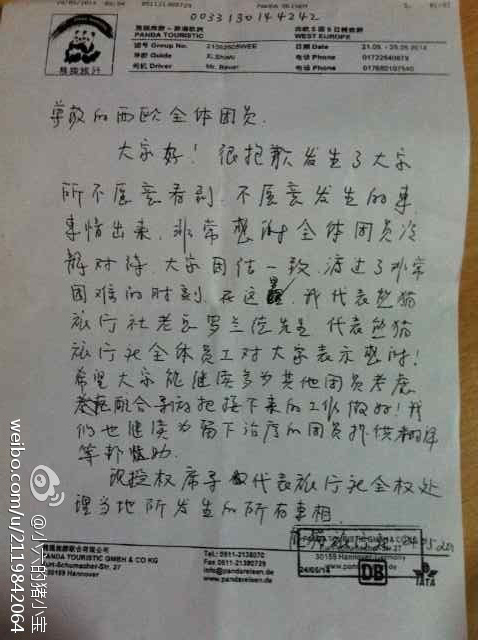 0033130144242
熊猫旅行
PANDA TOURISTIC
WEST EUROPE
团号 Group No.
日期 Date
导游 Guide
电话 Phone
01722640679
司机 Driver
电话 Phone
017680107540
尊敬的西欧全体团员.
大家好！很抱歉发生了大家
所不愿意看到.不愿意发生的事
事情出来.非常感谢全体团员冷
静对待.大家团结一致.渡过了非常
困难的时刻.在这里我代表熊猫
旅行社老总罗兰德先生代表熊猫
旅行社全体员工对大家表示感谢！
希望大家能继续多为其他团员考虑
配合导游把接下来的工作做好！我
们也继续为留下治疗的团员提供
等帮助.
现授权席子 代表旅行社全权处
理当地所发生的所有事相.
PANDA TOURISTIC GMBH & CO KG
Kurt-Schumacher-Str. 27
30159 Hannover
Tel.: 0511-2138070
Fax 0511-21380729
info@pandareisen.de
www.pandareisen.de
PANDA TOURISTIC GMBH & CO KG
30159 Hannover
24/05/14
DB
IATA
weibo.com/u/2119842064
@小大的猪小宝